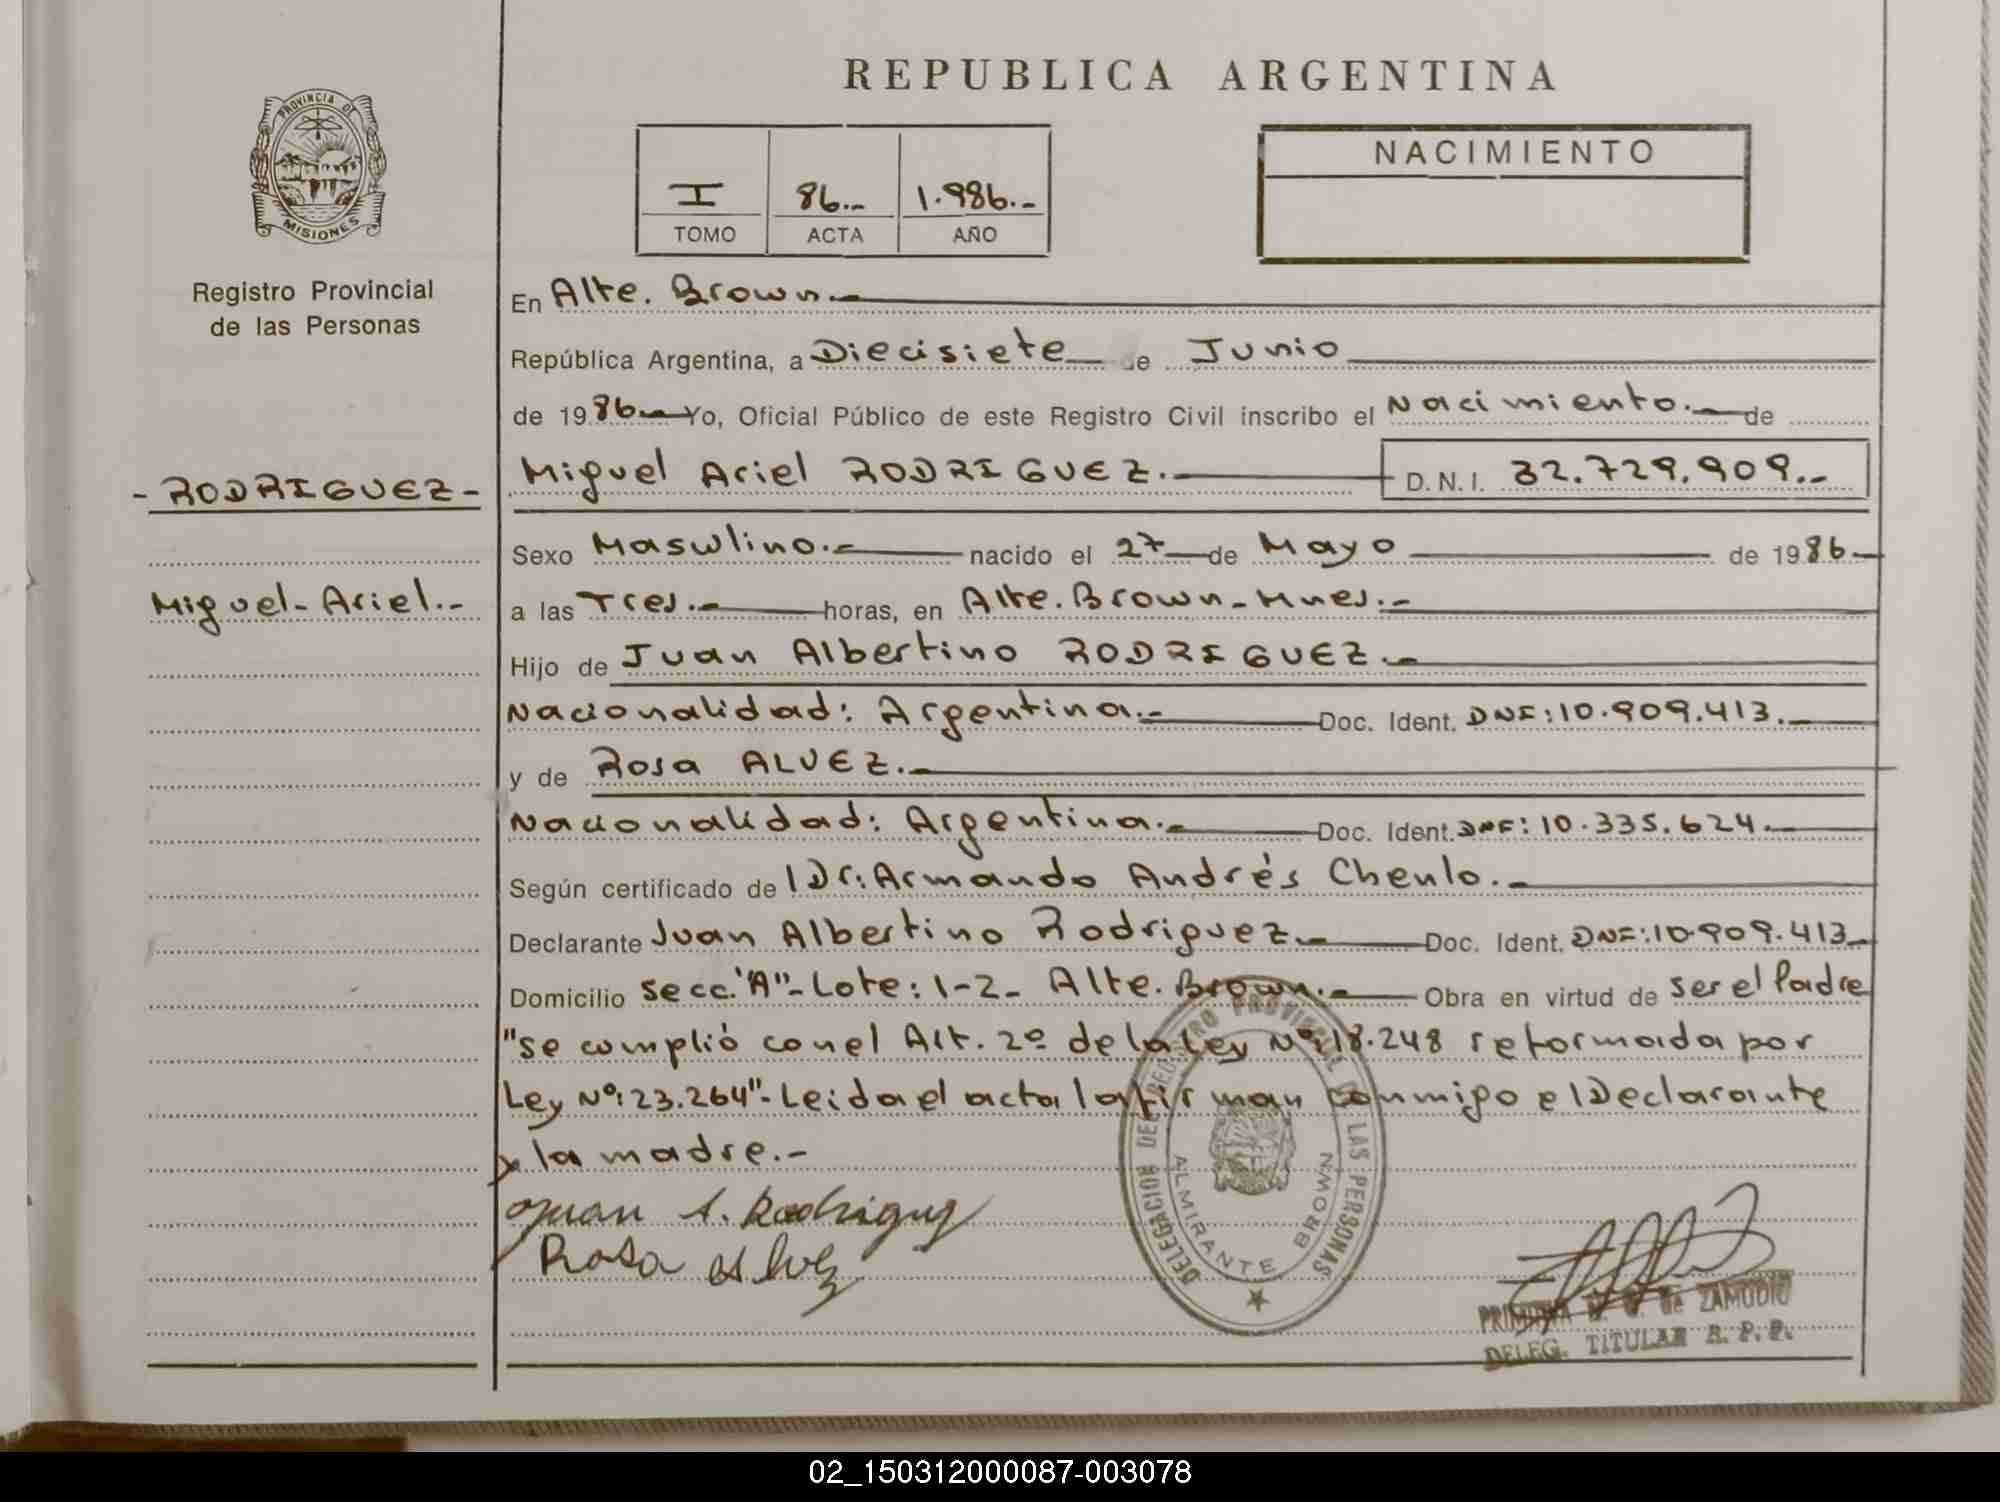 REPUBLICA ARGENTINA
PROVINCIA DE
MISIONES
Registro Provincial
de las Personas
I 86.- 1.986.-
TOMO ACTA AÑO
NACIMIENTO
En Alte. Brown.-
República Argentina, a Diecisiete de Junio
de 1986.- Yo, Oficial Público de este Registro Civil inscribo el Nacimiento.- de
- RODRIGUEZ -
Miguel Ariel RODRIGUEZ.- D.N.I. 32.729.909.-
Sexo Masculino.- nacido el 27 de Mayo de 1986.-
Miguel-Ariel.-
a las Tres.- horas, en Alte. Brown-Mnes.-
Hijo de Juan Albertino RODRIGUEZ.-
Nacionalidad: Argentina.- Doc. Ident. DNI: 10.909.413.-
y de Rosa ALVEZ.-
Nacionalidad: Argentina.- Doc. Ident. DNI: 10.335.624.-
Según certificado de Dr: Armando Andrés Chenlo.-
Declarante Juan Albertino Rodriguez.- Doc. Ident. DNI: 10.909.413.-
Domicilio secc. "A"-Lote: 1-2- Alte. Brown.- Obra en virtud de ser el Padre
"se cumplió con el Art. 2º de la Ley Nº: 18.248 reformada por
Ley Nº: 23.264".- Leida el acta la firman conmigo el Declarante
y la madre.-
Juan A. Rodriguez
Rosa Alvez
DELEGACION DEL REGISTRO PROVINCIAL DE LAS PERSONAS
ALMIRANTE BROWN
de ZAMUDIO
DELEG. TITULAR R. P. P.
02_150312000087-003078